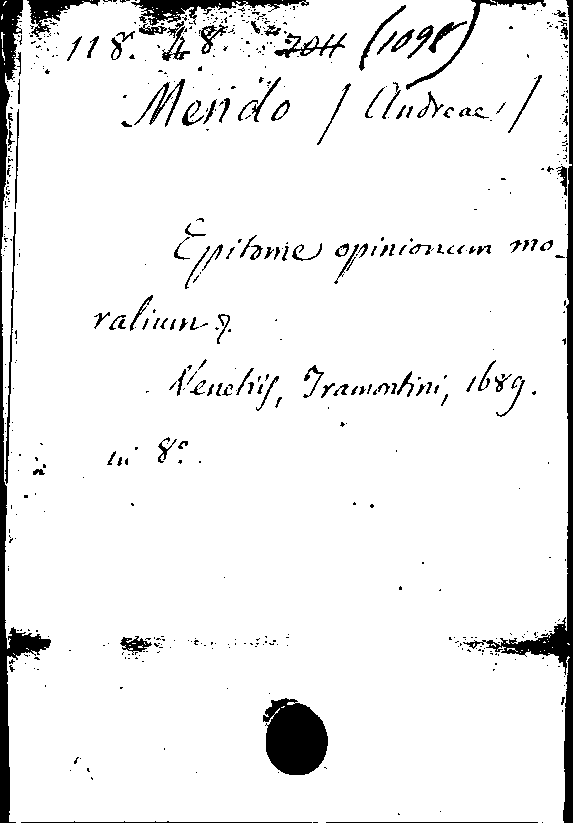 118. 48. 2044 (1098)
Mendo / Andreae /
Epitome opinionum mo-
ralium &.
Venetiis, Tramontini, 1689.
in 8°.